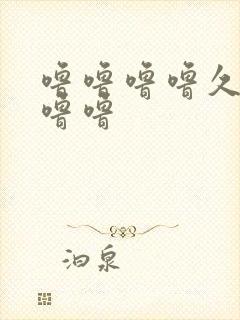 噜噜噜噜久
噜噜
泊泉